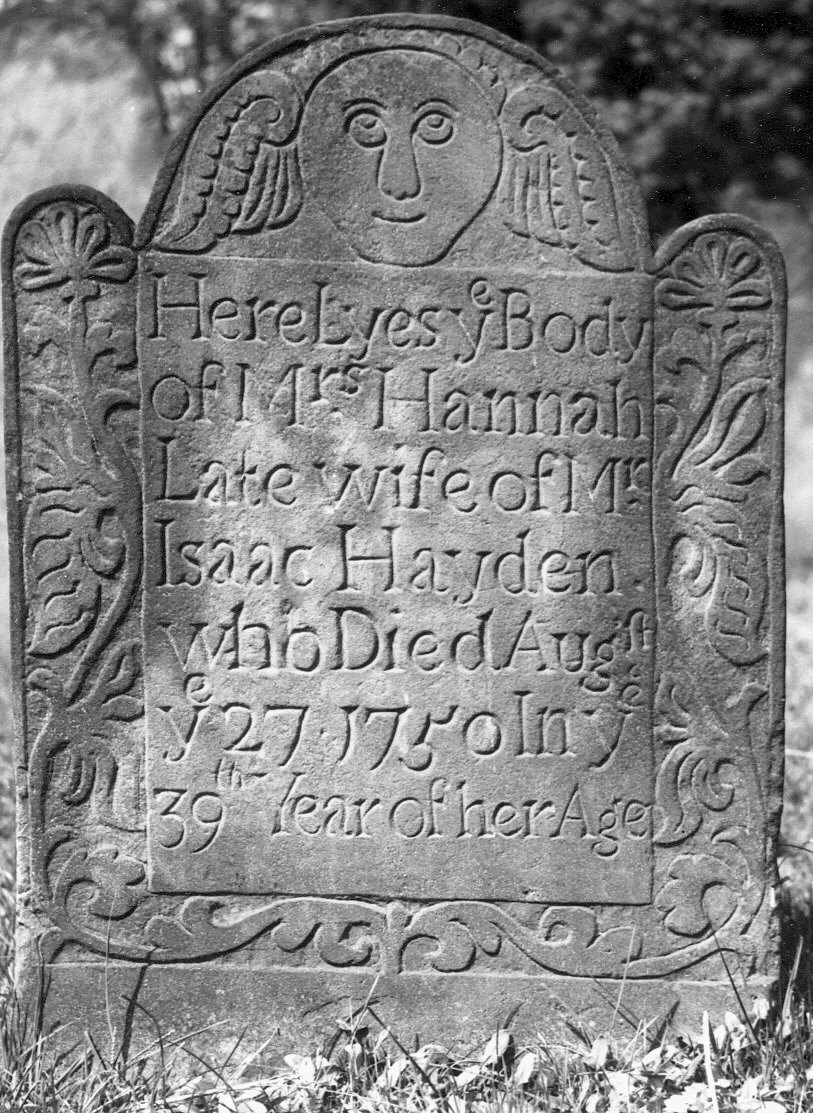 Here Lyes yᵉ Body
of Mʳˢ Hannah
Late wife of Mʳ
Isaac Hayden
who Died Augˢᵗ
yᵉ 27 1750 In yᵉ
39ᵗʰ Year of her Age